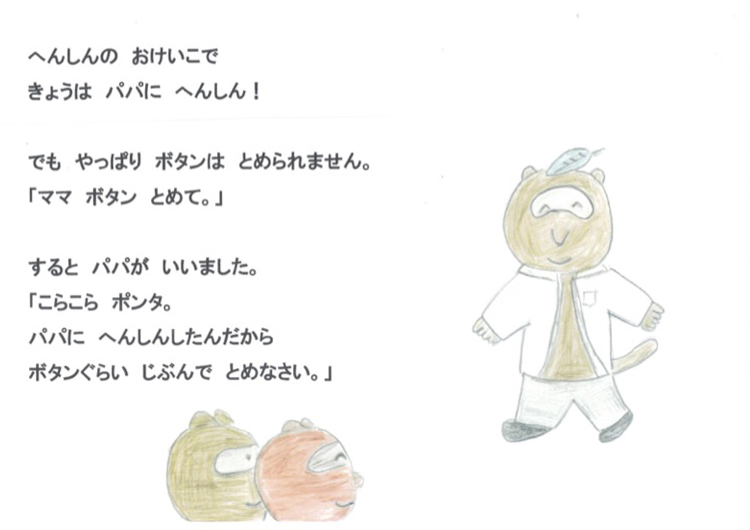 へんしんの おけいこで
きょうは パパに へんしん！
でも やっぱり ボタンは とめられません。
「ママ ボタン とめて。」
すると パパが いいました。
「こらこら ポンタ。
パパに へんしんしたんだから
ボタンぐらい じぶんで とめなさい。」